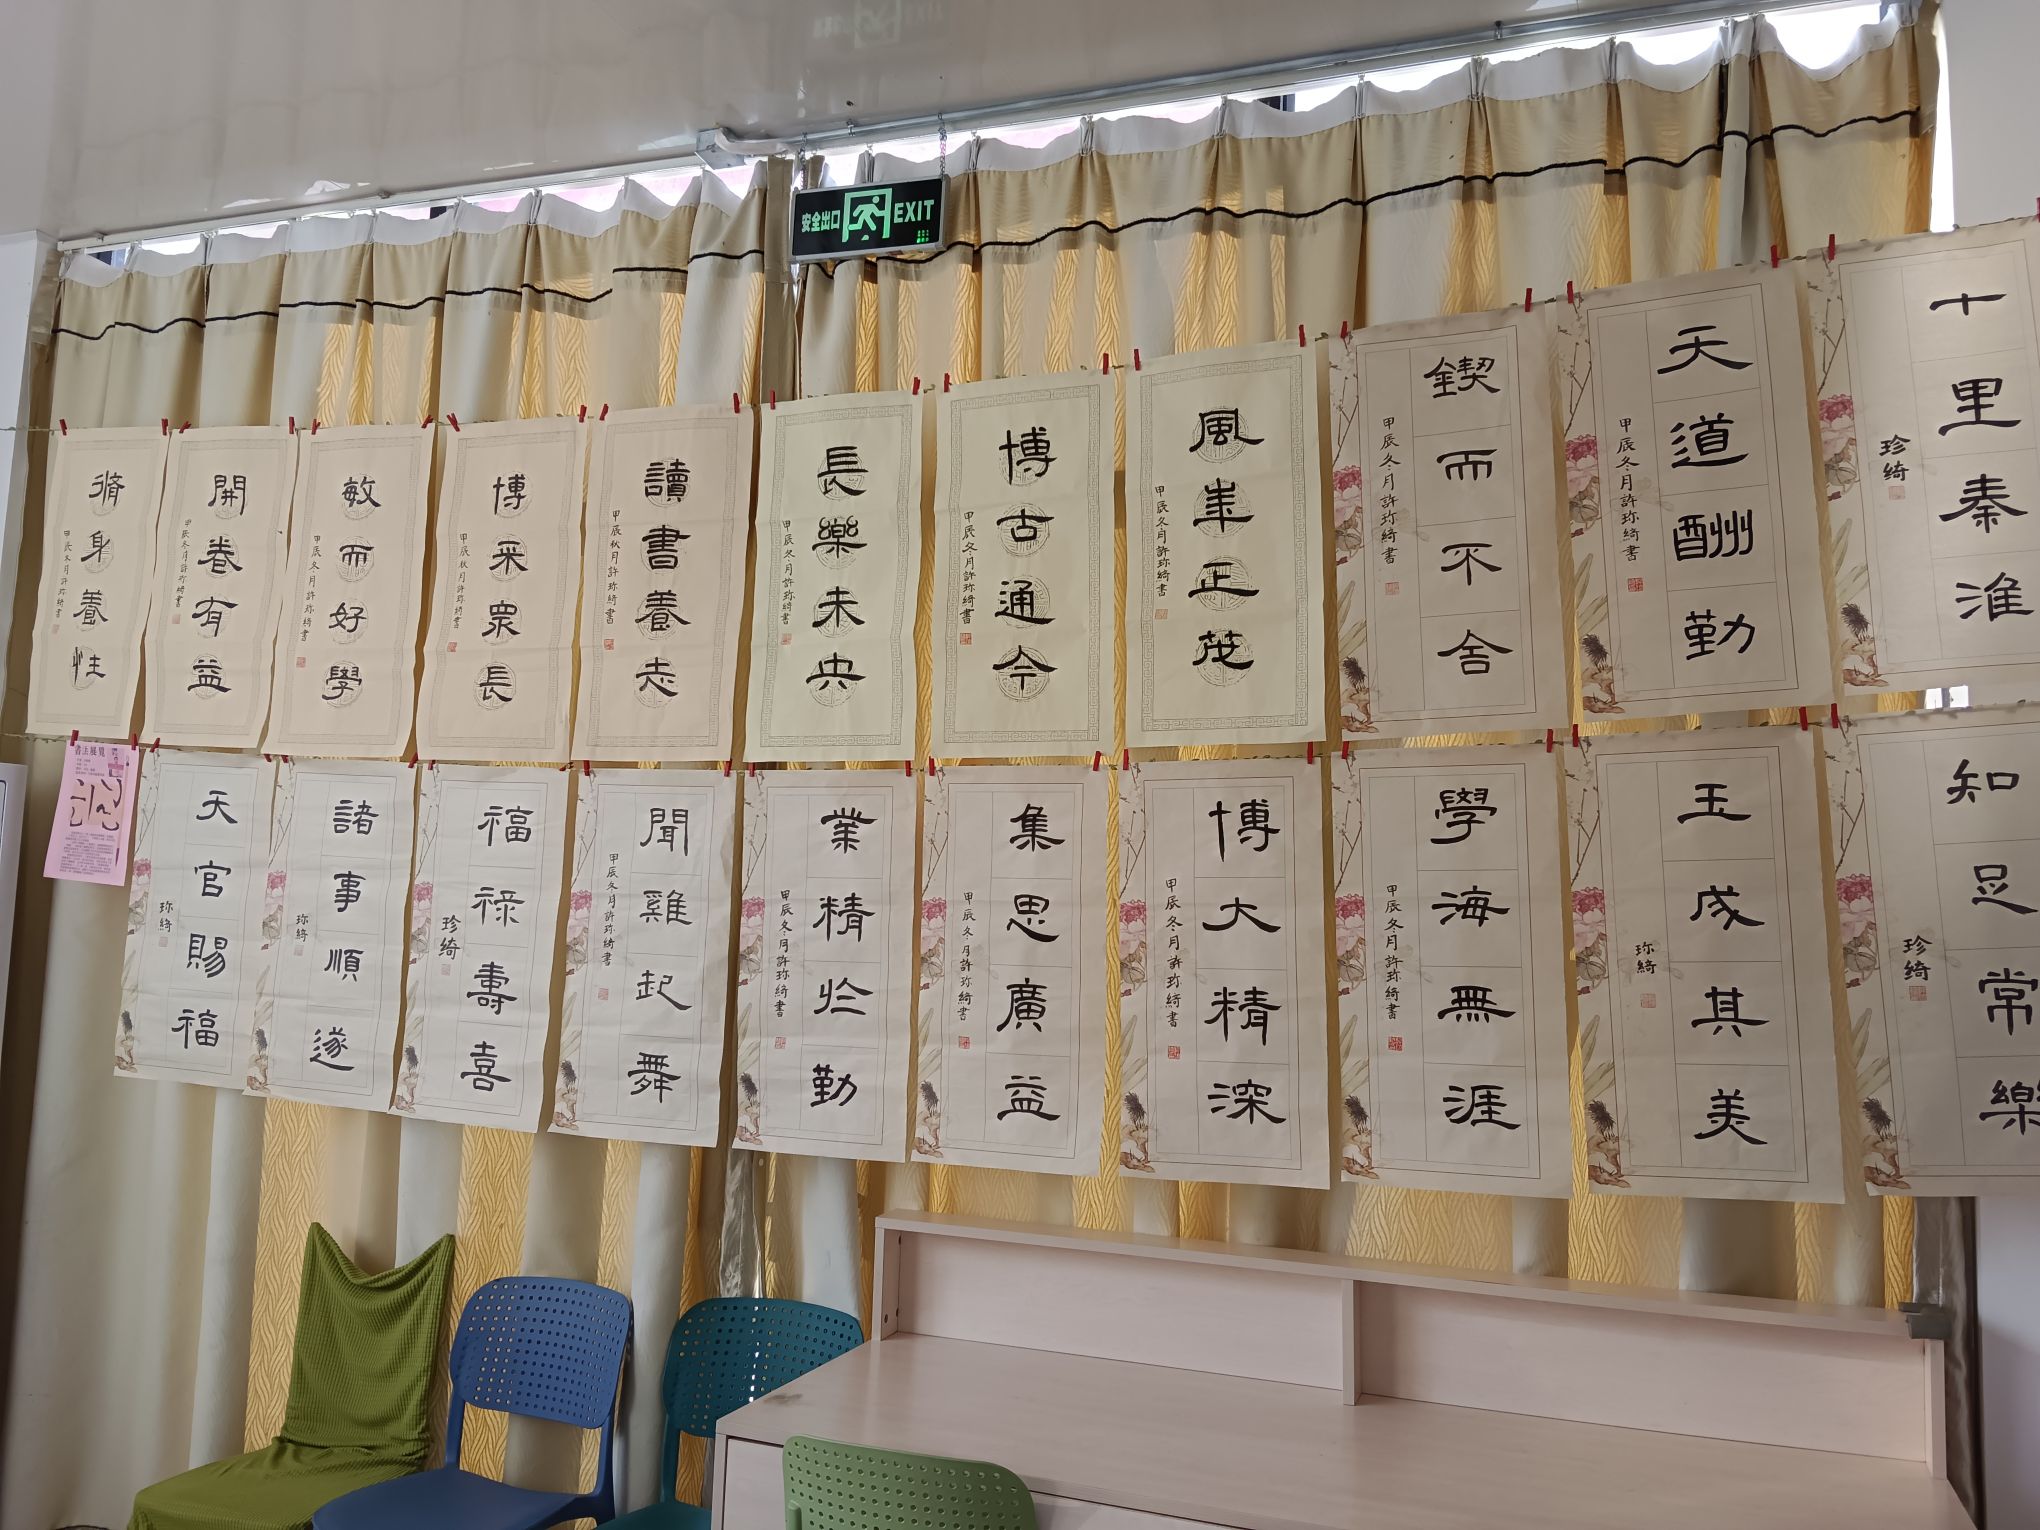 安全出口 EXIT
脩身養性
甲辰冬月許珎綺書
開卷有益
甲辰冬月許珎綺書
敏而好學
甲辰冬月許珎綺書
博采眾長
甲辰秋月許珎綺書
讀書養志
甲辰秋月許珎綺書
長樂未央
甲辰冬月許珎綺書
博古通今
甲辰冬月許珎綺書
風華正茂
甲辰冬月許珎綺書
鍥而不舍
甲辰冬月許珎綺書
天道酬勤
甲辰冬月許珎綺書
十里秦淮
珍綺
書法展覽
天官賜福
珎綺
諸事順遂
珎綺
福祿壽喜
珍綺
聞雞起舞
甲辰冬月許珎綺書
業精於勤
甲辰冬月許珎綺書
集思廣益
甲辰冬月許珎綺書
博大精深
甲辰冬月許珎綺書
學海無涯
甲辰冬月許珎綺書
玉成其美
珎綺
知足常樂
珍綺